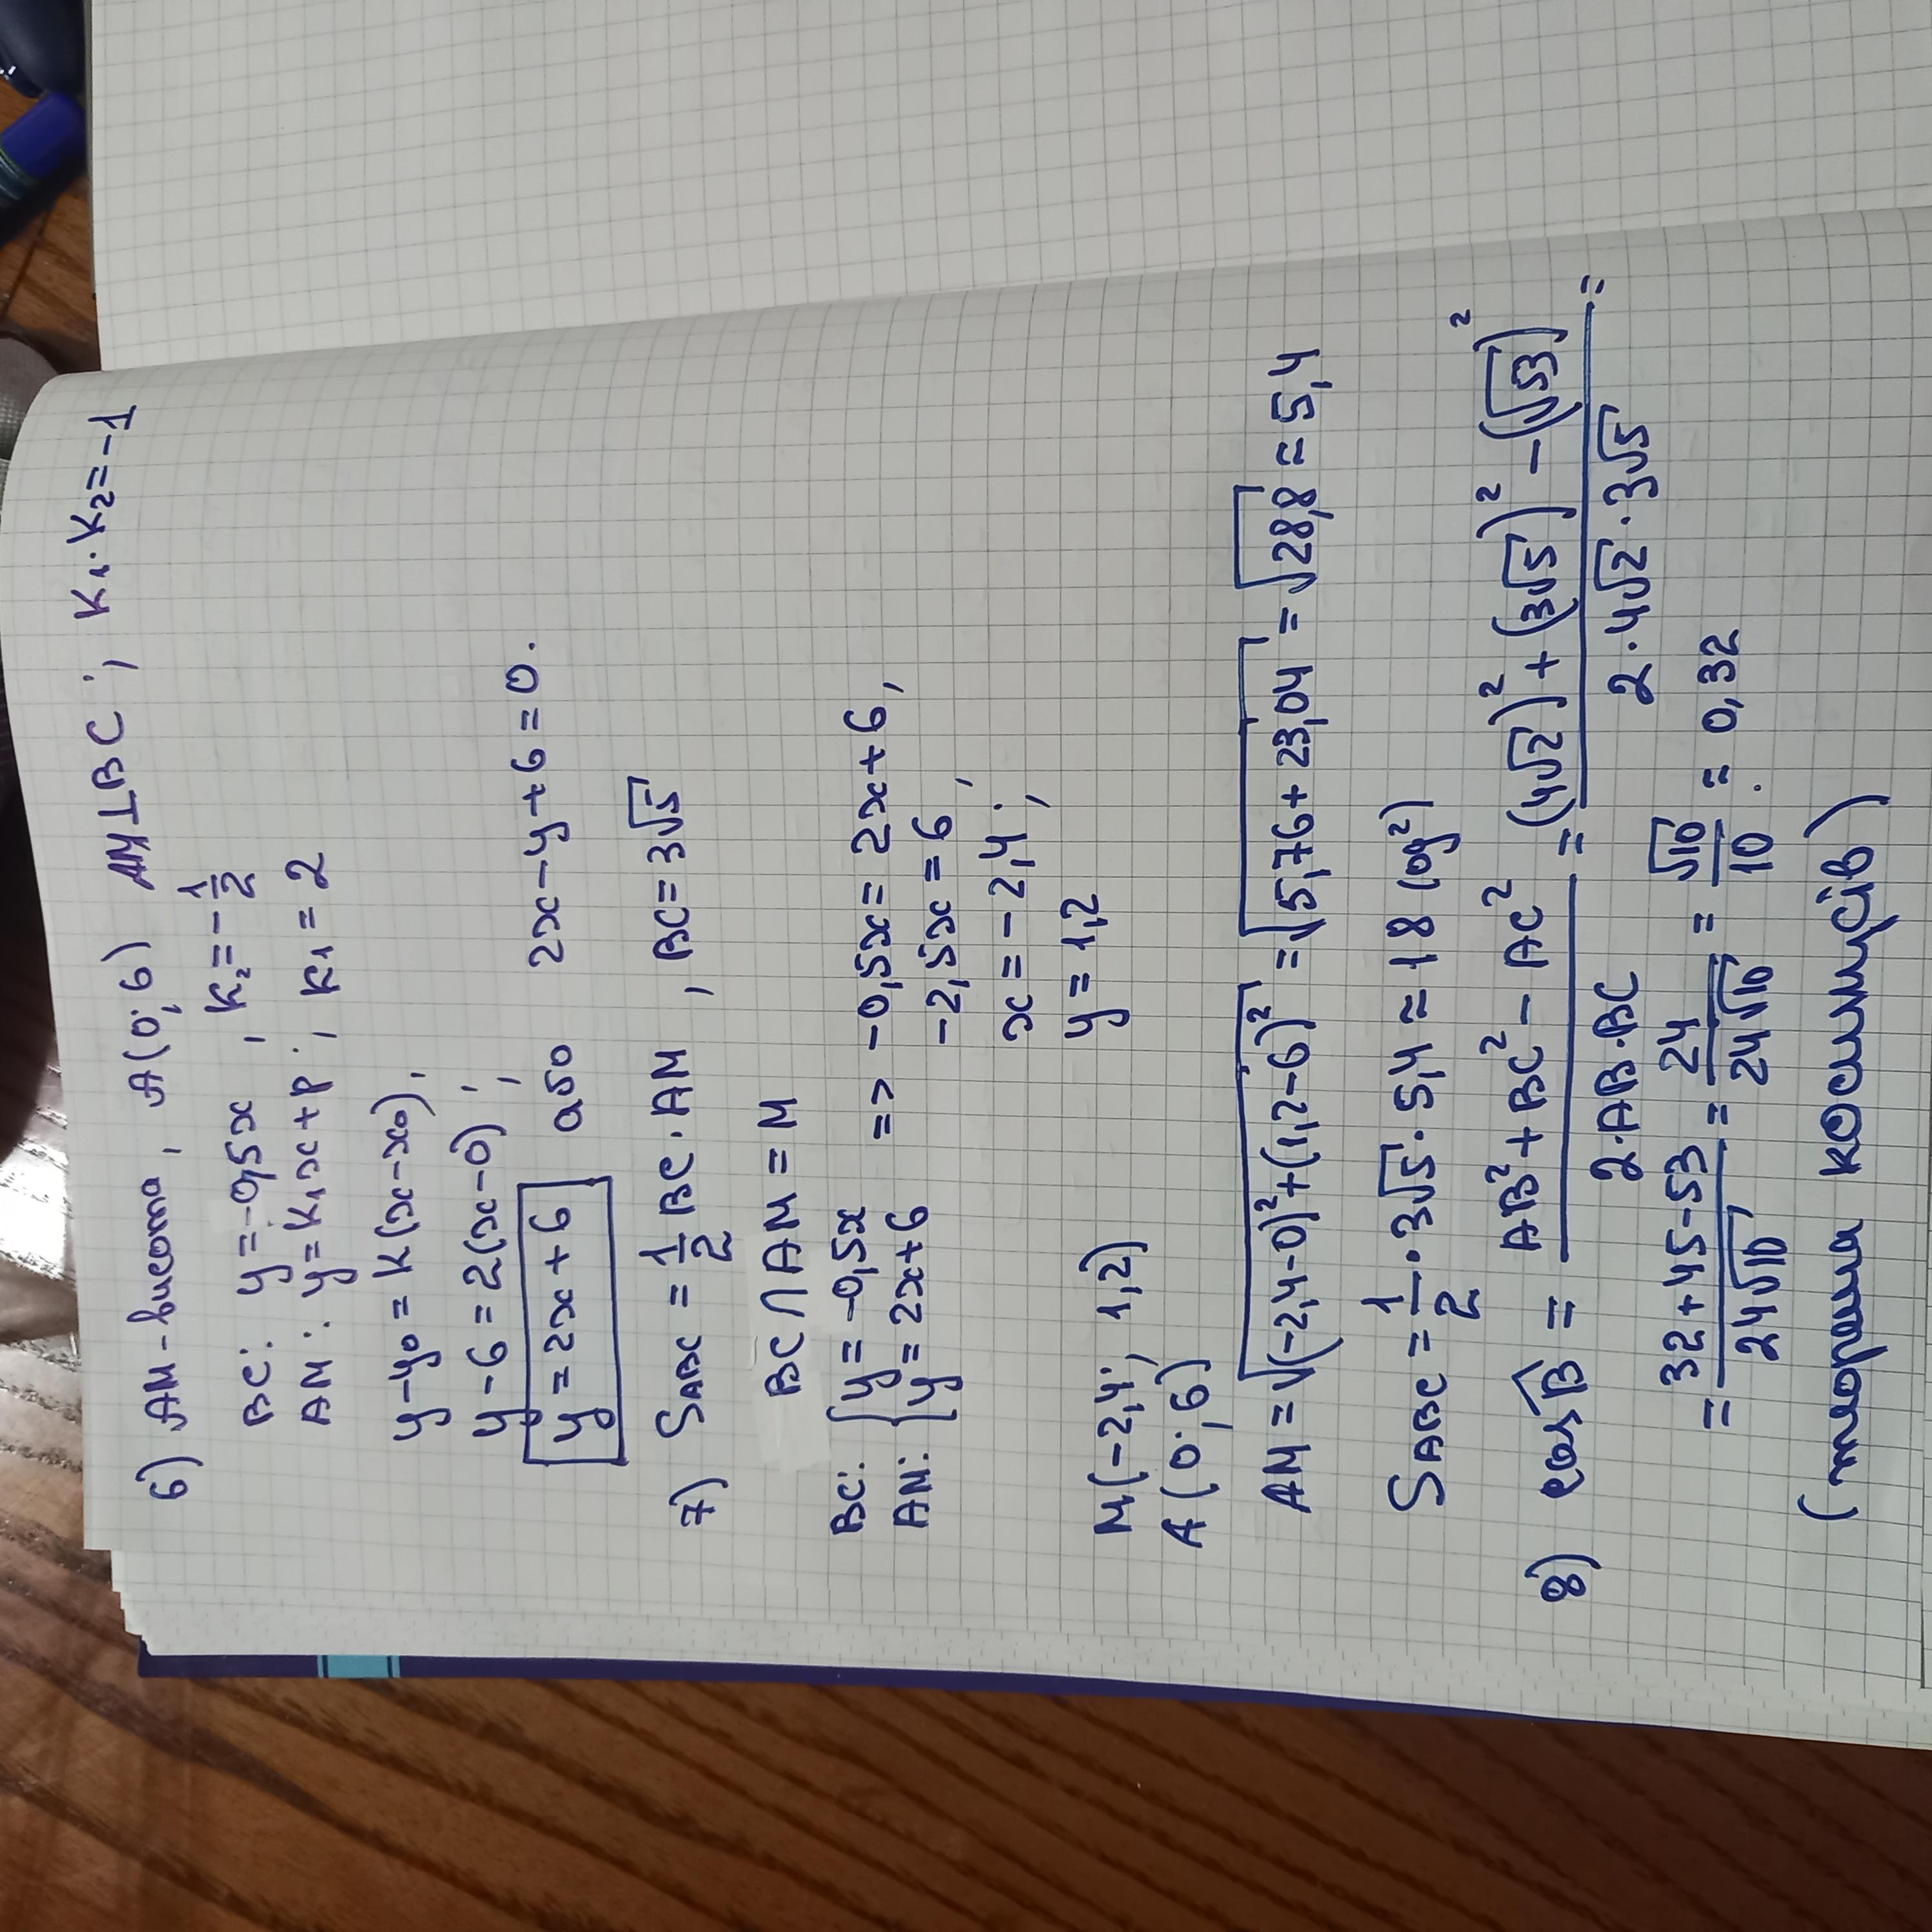 6) AM-висота, A(0;6) AM⊥BC; K₁·K₂=-1
BC: y=-0,5x, K₂=-1/2
AM: y=K₁x+p; K₁=2
y-y₀=K(x-x₀);
y-6=2(x-0);
y=2x+6 або 2x-y+6=0.
7) SABC=1/2 BC·AM, BC=3√5
BC∩AM=M
BC: {y=-0,5x => -0,5x=2x+6,
AM: {y=2x+6 -2,5x=6,
x=-2,4;
y=1,2
M(-2,4; 1,2)
A(0;6)
AM=√((-2,4-0)²+(1,2-6)²)=√(5,76+23,04)=√28,8≈5,4
SABC=1/2·3√5·5,4≈18 (од²)
8) cos B̂ = (AB²+BC²-AC²)/(2·AB·BC) = ((4√2)²+(3√5)²-(√53)²)/(2·4√2·3√5) =
= (32+45-53)/(24√10) = 24/(24√10) = √10/10 ≈ 0,32
(теорема косинусів)